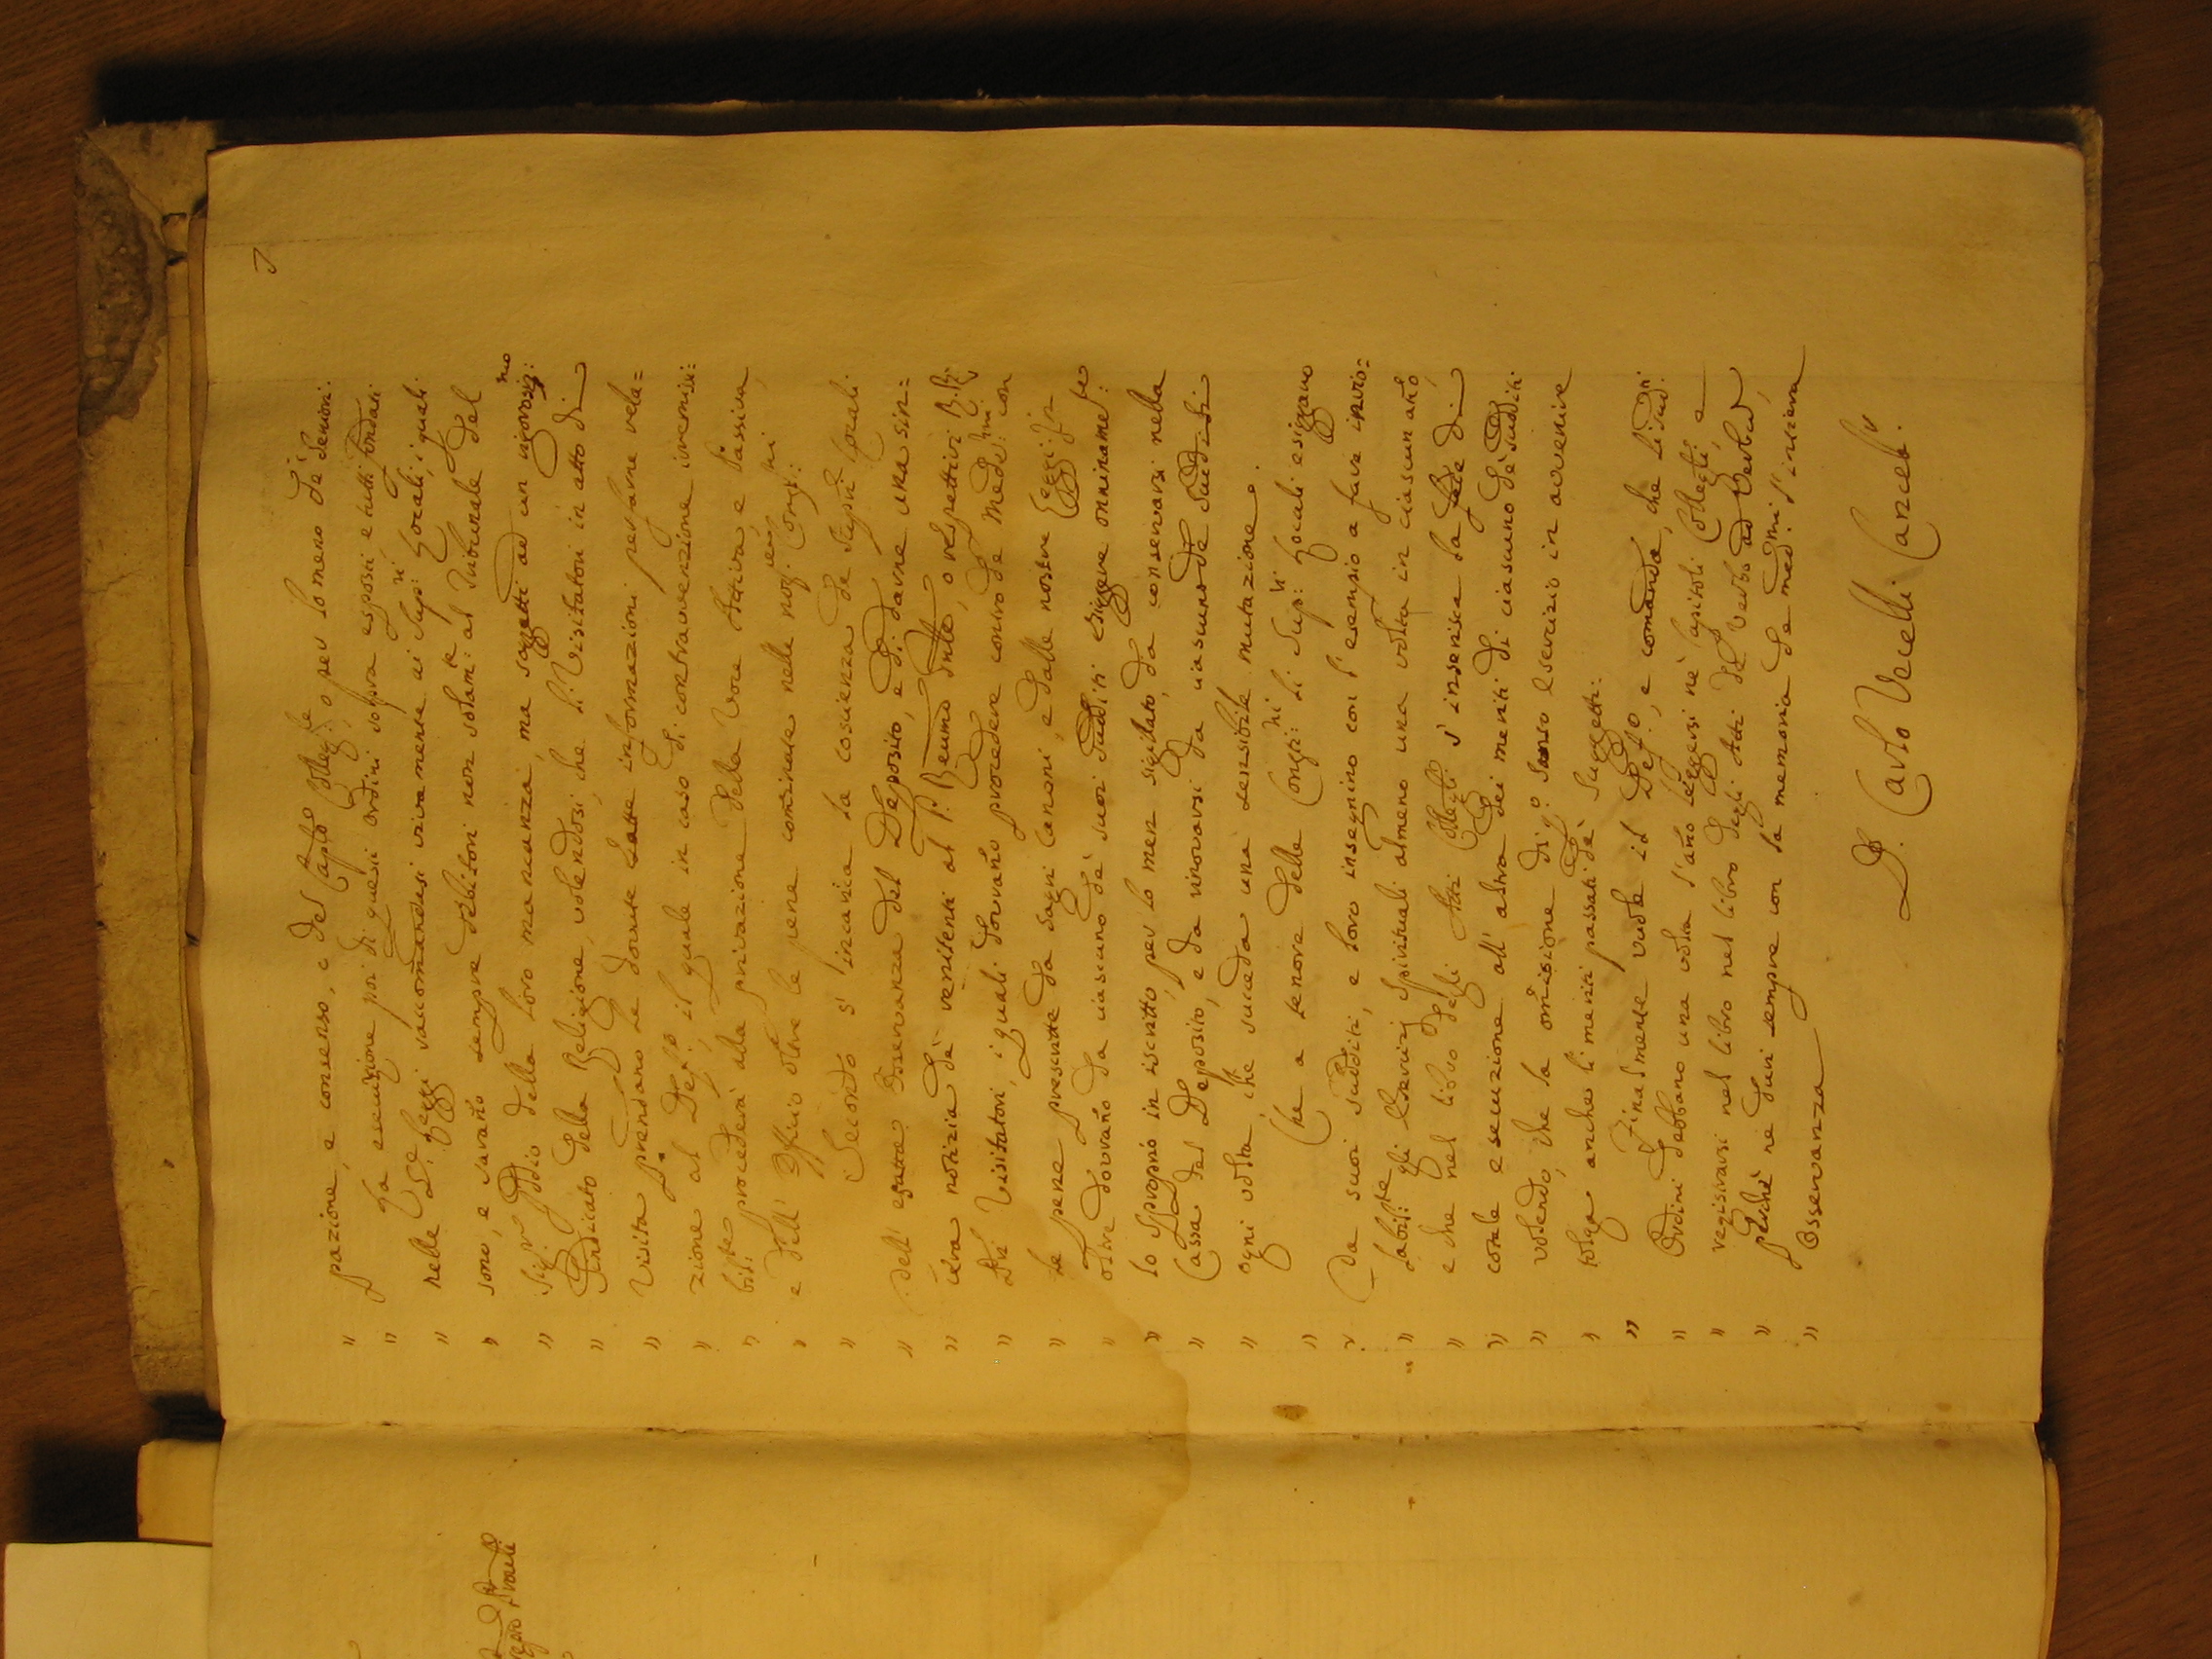 7
" pazione, e consenso, e del Caplo Colleg:le o per lo meno de' Seniori.
" La esecuzione poi di questi ordini sopra esposti, e tutti fondati
" nelle Leggi raccomandasi vivamente ai Sup:ri Locali, i quali
" sono, e saranno sempre debitori non solam:te al Tribunale del
" Sig:r Iddio della loro mancanza, ma soggetti ad un rigorosis:mo
" Sindicato della Religione, volendosi, che li Visitatori in atto di
" Visita prendano le dovute informazioni per farne rela=
" zione al Def:o, il quale in caso di contravenzione irremisi=
" bil:te procederà alla privazione della Voce Attiva, e Passiva,
" e dell' Officio oltre le pene cominate nelle nos: Cons:ni
" Secondo s' incarica la coscienza de Sup:ri Locali
" dell' esatta Osservanza del Deposito, e di darne una sin=
" cera notizia de' renitenti al P. Revmo Gnle, o respettivi P.P.
" Visitatori, i quali dovranno procedere contro de Medes:mi con
" le pene prescritte da Sagri Canoni, e dalle nostre Leggi, Ed in
" oltre dovranno da ciascuno de' suoi Sudditi esiggere onninamte:
" lo Sproprio in iscritto, per lo men sigillato, da conservarsi nella
" Cassa del Deposito, e da rinovarsi da ciascuno de Sudditi
" ogni volta, che succeda una sensibile mutazione.
" Che a tenore delle Constit:ni li Sup:ri Locali esiggano
" da suoi Sudditi, e loro insegnino con l'esempio a fare invio=
" labil:te gli Esercizj Spirituali almeno una volta in ciascun año,
" e che nel libro degli Atti Collegli s' inserisca la fede di
" cotale esecuzione all' altra dei meriti di ciascuno de' Sudditi
" volendo, che la omissione di q:o Santo Esercizio in avvenire
" tolga anche li meriti passati de' Suggetti.
" Finalmente vuole il Def:o, e comanda, che li sud:ti
" Ordini debbano una volta l'año leggersi ne' Capitoli Collegli, e
" registrarsi nel libro nel libro degli Atti de Verbo ad Verbum,
" perchè ne duri sempre con la memoria de med:mi l'intiera
" Osservanza
D. Carlo Vecelli Cancel:re